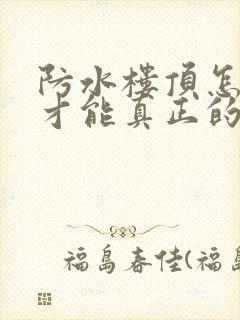 防水樓頂怎
才能真正的
福島春佳(福島